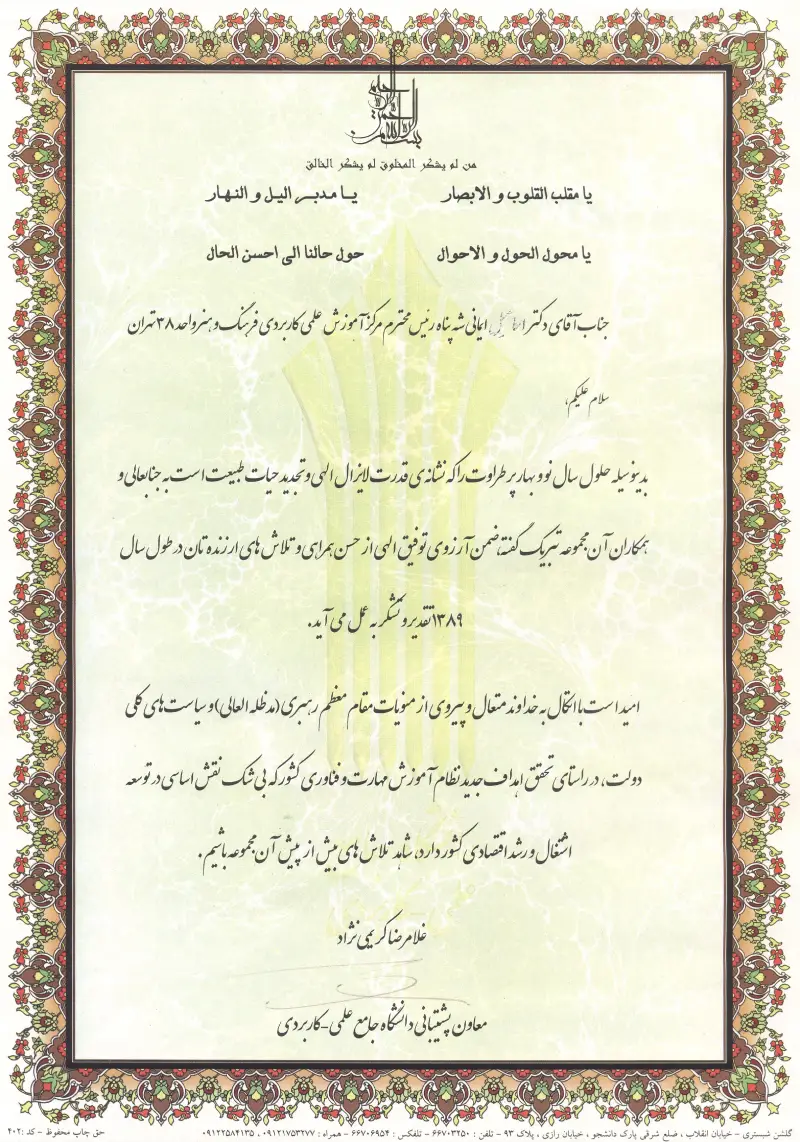 بسم الله الرحمن الرحیم
من لم یشکر المخلوق لم یشکر الخالق
یا مقلب القلوب و الابصار یا مدبر الیل و النهار
یا محول الحول و الاحوال حول حالنا الی احسن الحال
جناب آقای دکتر ایمانی شه پناه رئیس محترم مرکز آموزش علمی کاربردی فرهنگ و هنر واحد ۳۸ تهران
سلام علیکم،
بدینوسیله حلول سال نو و بهار پر طراوت را که نشانه ی قدرت لایزال الهی و تجدید حیات طبیعت است به جنابعالی و
همکاران آن مجموعه تبریک گفته، ضمن آرزوی توفیق الهی از حسن همراهی و تلاش های ارزنده تان در طول سال
۱۳۸۹ تقدیر و تشکر به عمل می آید.
امید است با اتکال به خداوند متعال و پیروی از منویات مقام معظم رهبری (مدظله العالی) و سیاست های کلی
دولت، در راستای تحقق اهداف جدید نظام آموزش مهارت و فناوری کشور که بی شک نقش اساسی در توسعه
اشتغال و رشد اقتصادی کشور دارد، شاهد تلاش های بیش از پیش آن مجموعه باشیم.
غلامرضا کریمی نژاد
معاون پشتیبانی دانشگاه جامع علمی-کاربردی
گلشن شبستری - خیابان انقلاب ، ضلع شرقی پارک دانشجو ، خیابان رازی ، پلاک ۹۳ - تلفن : ۶۶۷۰۳۲۵۰ - تلفکس : ۶۶۷۰۶۹۵۴ - همراه : ۰۹۱۲۱۷۵۳۲۷۷ ، ۰۹۱۲۲۵۸۴۱۳۵ حق چاپ محفوظ - کد :۴۰۲